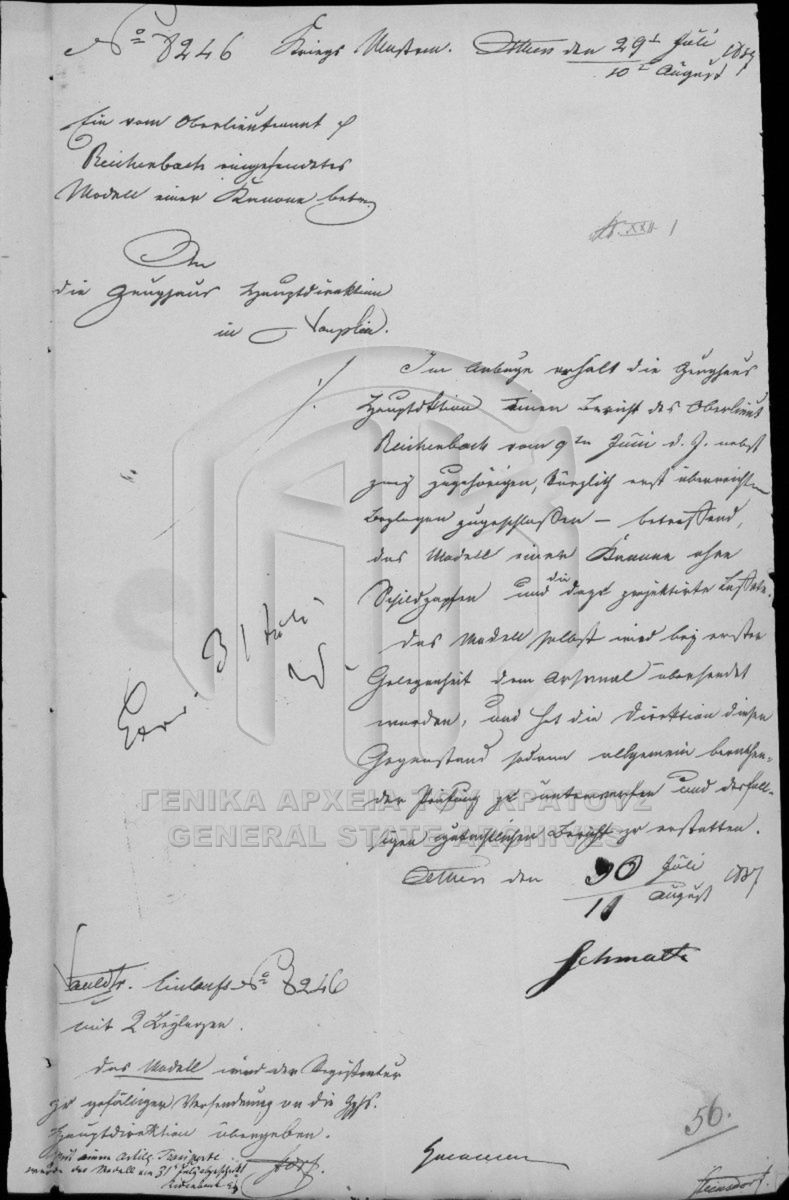 No 8246 Kriegs Mstrm. Athen den 29t Juli 1837
10t August
Ein vom Oberlieutenant
Reichenbach eingesendetes
Modell einer Kanone betr.
An
die Zeughaus Hauptdirektion
in Nauplia.
Im Anbuge erhält die Zeughaus
Hauptdktion einen Bericht des Oberlieut
Reichenbach vom 9ten Juni d. J. nebst
zwei zugehörigen, kürzlich erst überreichten
Beylagen zugeschlossen – betreffend,
das Modell einer Kanone ohne
Schildzapfen und die dazu projektirte Laffete.
Das Modell selbst wird bey erster
Gelegenheit dem Arsenal übersendet
werden, und hat die Direktion diesen
Gegenstand sodann allgemein berathen=
der Prüfung zu unterwerfen und desfall=
sigen gutachtlichen Bericht zu erstatten.
Athen den 30 Juli 1837
11 August
Schmaltz
31 Juli
ΓΕΝΙΚΑ ΑΡΧΕΙΑ ΤΟΥ ΚΡΑΤΟΥΣ
GENERAL STATE ARCHIVES
Einlaufs No 8246
mit 2 Beylagen.
Das Modell wird der Registratur
zu gefälliger Versendung an die Zghs.
Hauptdirektion übergeben.
Mit einem Artill. Transporte
wurde das Modell am 31t July abgeschickt
56.